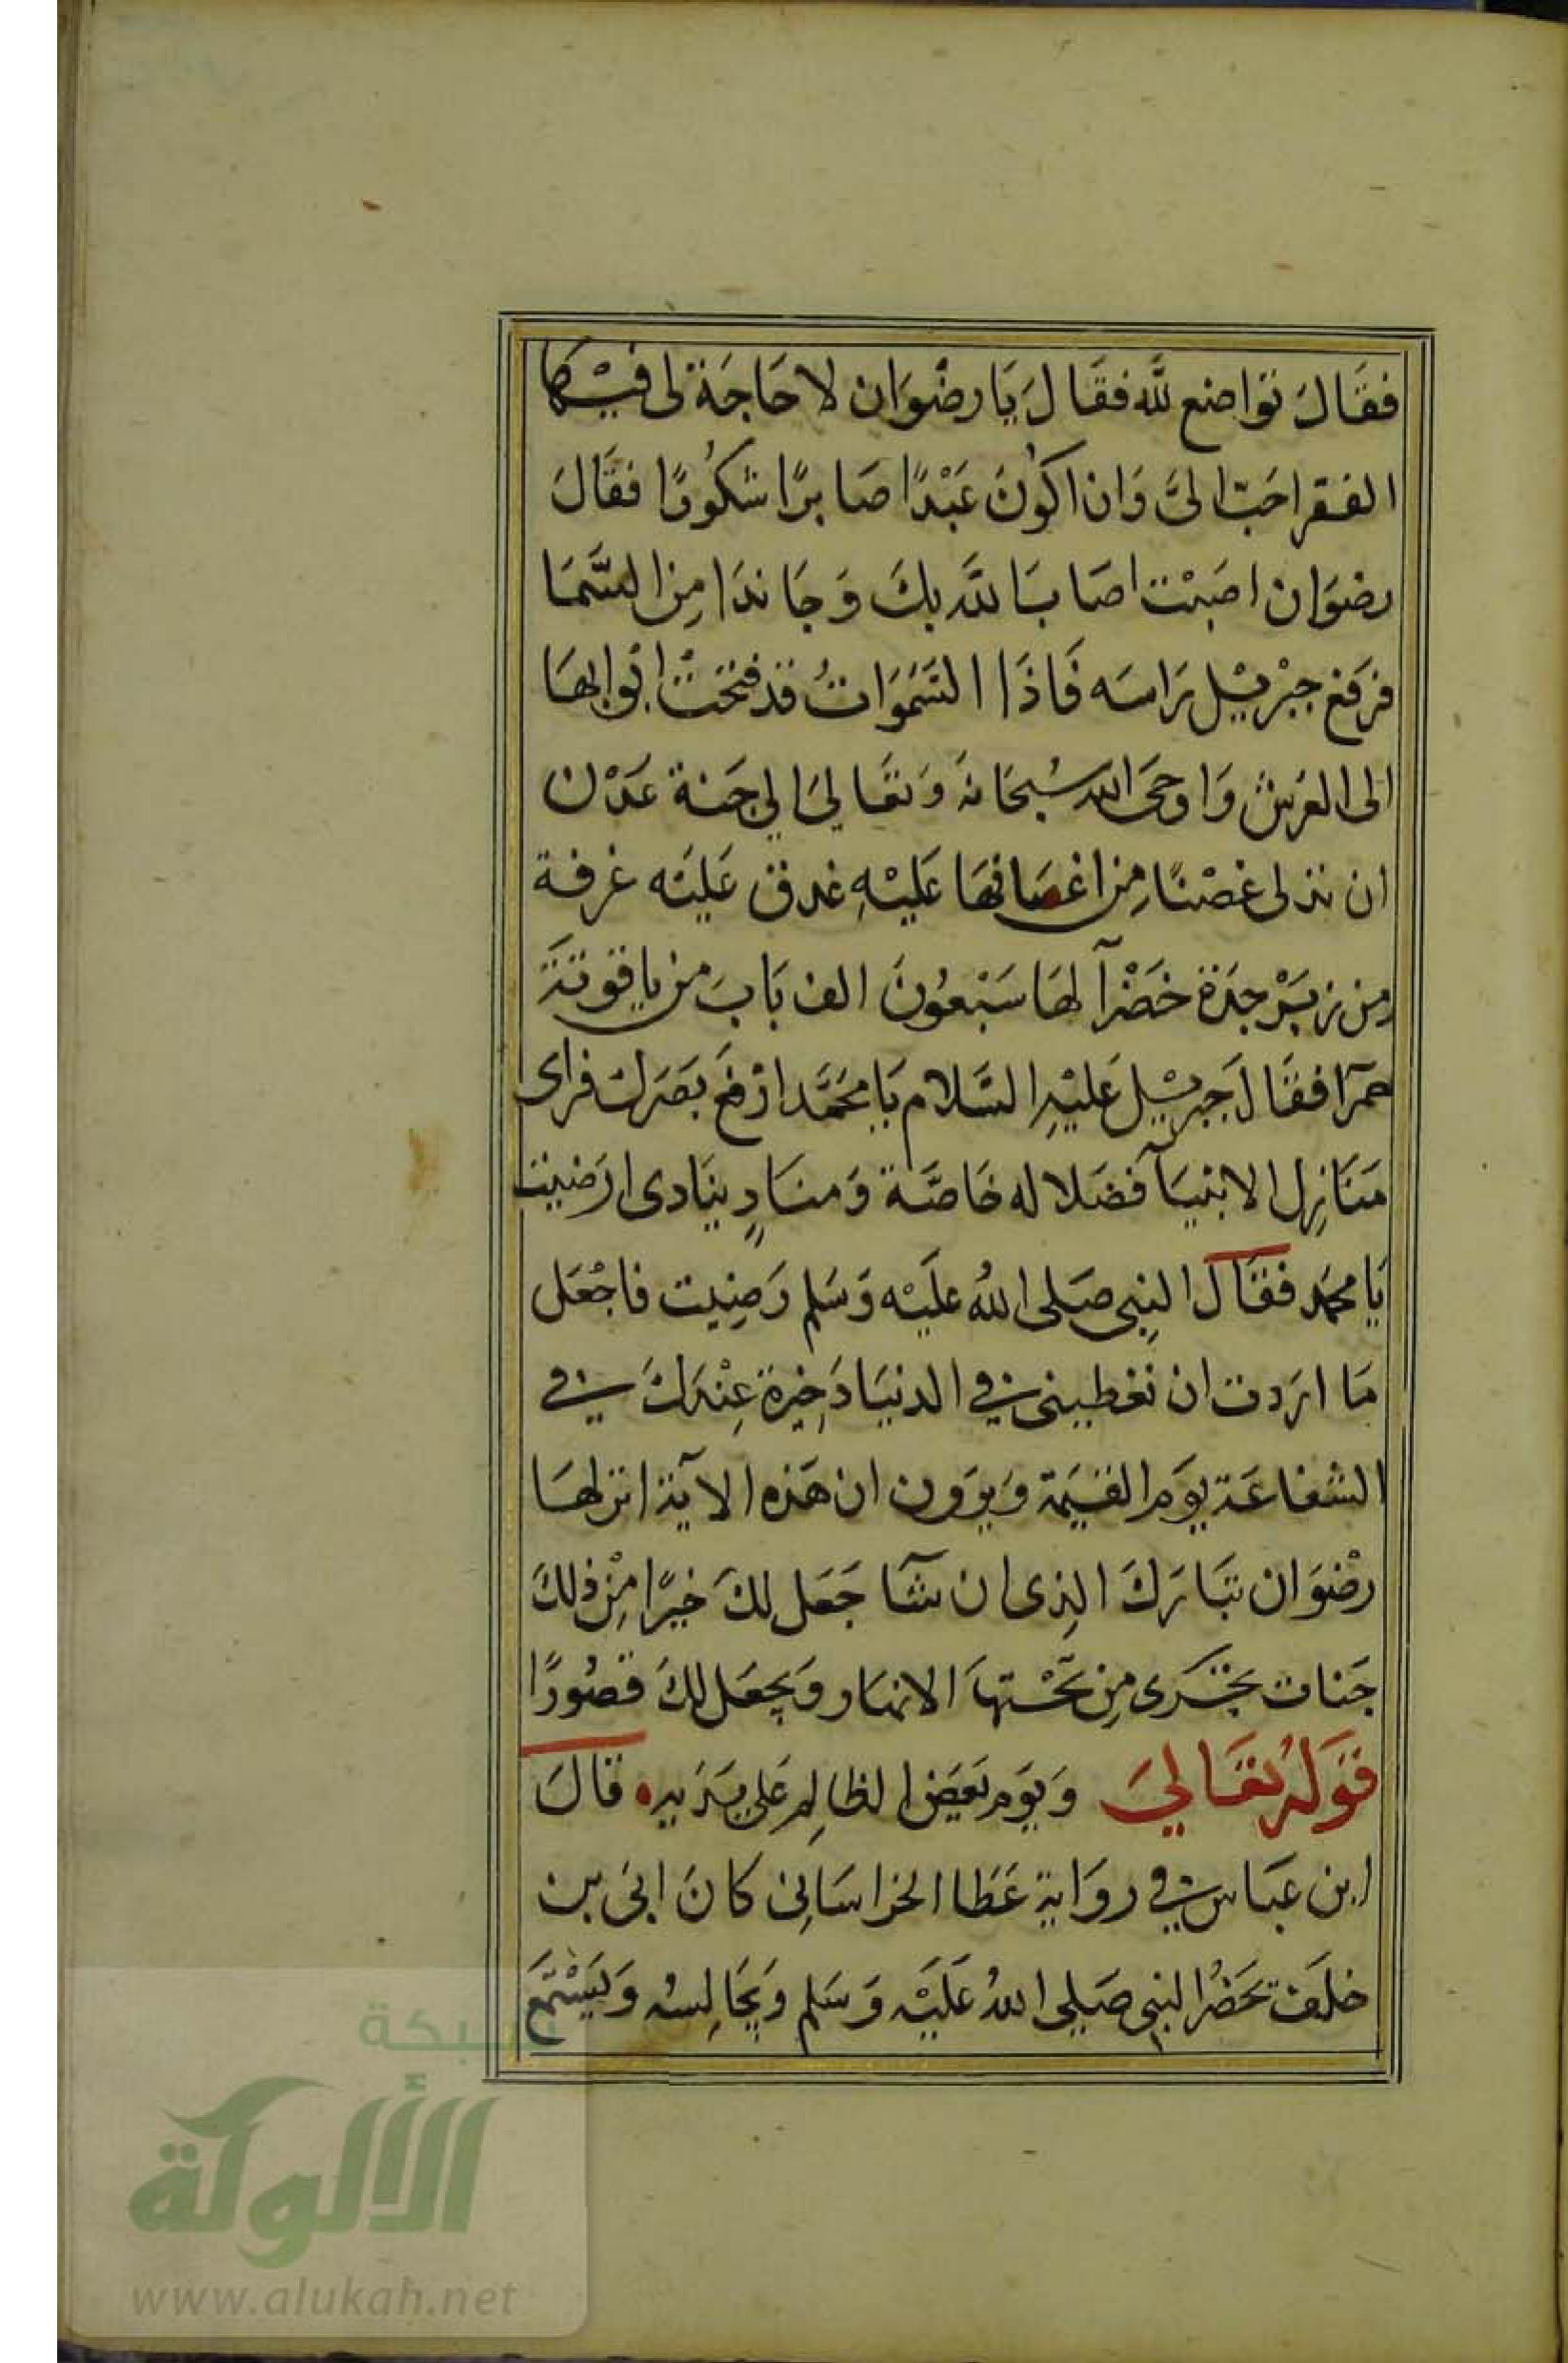 فقَالَ تواضع للَّه فقَالَ يَا رضْوَان لا حَاجَة لى فيْهَا
الفقر احَبّ الىَّ وَان اكوُنَ عَبْدًا صَابرًا شكُورًا فقَالَ
رضوَان اصَبْت اصَابَ اللَّه بكَ وَجَا ندَا مِن السَّمَا
فرَفع جبْريْل رَاسَه فَاذَا السَّمَوَاتُ قدْ فتحَتْ ابْوابهَا
الى العَرش وَاوحَى الله سُبحَانهَ وَتعَالىَ الي جَنة عَدْن
ان تدلى غصْنًا مِن اغصَانهَا عَليْهِ غدق عَليَه غرفة
مِن زبَرْجدَة خَضْرآ لهَا سَبْعُونَ الف بَاب من ياقوتةَ
حمرَا فقَالَ جَبريْل عَليْهِ السَّلام يَا محَمَّد ارْفعَ بَصَركَ فراى
مَنَازِل الانبيَآ فضَلا له خَاصَّة وَمنَادٍ ينَادى ارَضيت
يَا محمَد فقَالَ النِبى صَلى اللهُ عليَه وَسَلم رَضِيت فاجْعَل
مَا ارَدت ان تعْطيِنى في الدنيَا ذَخِيرة عِنْدكَ في
الشفاعَة يوَم القيَمة وَيروَون ان هَذه الآية انزلهَا
رضْوَان تبَارَكَ الذِى ان شآ جَعَل لكَ خيرًا مِنْ ذلكَ
جَنات تجْرى مِن تحْتهَا الانهَار وَيجعَل لكَ قصُورًا
قوَلهُ تعَالىَ وَيوَم يَعضَ الظالِم عَلى يَدَيه قالَ
ابن عبَاس في روَاية عَطا الخراسَانِى كانَ ابىَ بن
خلَف يَحضُر النبِى صَلى اللهُ عَليَه وَسَلم وَيجَالِسُه وَيَسْتمَع
شبكة
الألوكة
www.alukah.net